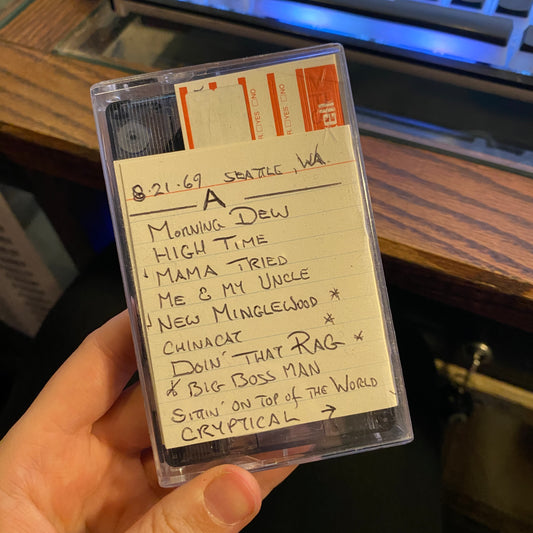 8·21·69 SEATTLE, WA.
A
MORNING DEW
HIGH TIME
MAMA TRIED
ME & MY UNCLE
NEW MINGLEWOOD *
CHINACAT *
DOIN' THAT RAG *
* BIG BOSS MAN
SITTIN' ON TOP OF THE WORLD
CRYPTICAL →
YES NO
YES NO